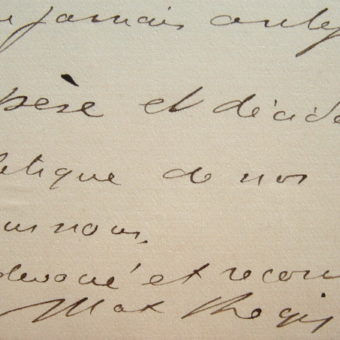 jamais
père et décide
tique de nos
nous.
devoué et recon
Max Regis